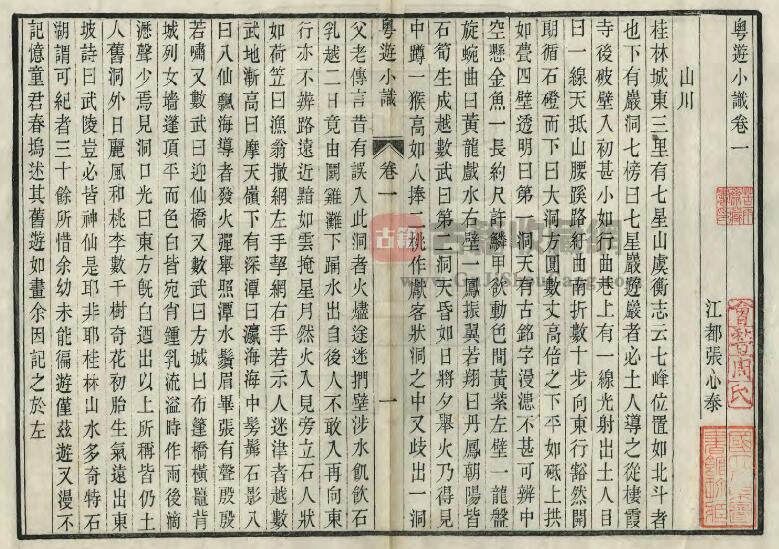 粵遊小識卷一
江都張心泰
山川
桂林城東三里有七星山虞衡志云七峰位置如北斗者
也下有巖洞七榜曰七星巖遊巖者必土人導之從棲霞
寺後破壁入初甚小如行曲巷上有一線光射出土人目
曰一線天抵山腰蹊路紆曲南折數十步向東行豁然開
朗循石磴而下曰大洞方圓數丈高倍之下平如砥上拱
如甍四壁透明曰第一洞天有古銘字漫漶不甚可辨中
空懸金魚一長約尺許鱗甲欲動色間黃紫左壁一龍盤
旋蜿曲曰黃龍戲水右壁二鳳振翼若翔曰丹鳳朝陽皆
石筍生成越數武曰第二洞天昏如日將夕舉火乃得見
中蹲一猴高如人捧二桃作獻客狀洞之中又歧出一洞
粵遊小識 卷一 一
父老傳言昔有誤入此洞者火燼途迷捫壁涉水飢飲石
乳越二日竟由鬭雞灘下踊水出自後人不敢入再向東
行亦不辨路遠近黯如雲掩星月然火入見旁立石人狀
如荷笠曰漁翁撤網左手挐網右手若示人迷津者越數
武地漸高曰摩天嶺下有深潭曰瀛海海中髣髴石影八
曰八仙飄海導者發火彈舉照潭水鬚眉畢張有聲殷殷
若嘯又數武曰迎仙橋又數武曰方城曰布篷橋橫鼉背
城列女墻蓬頂平而色白皆宛肖鍾乳流溢時作雨後滴
瀝聲少焉見洞口光曰東方旣白迺出以上所稱皆仍土
人舊洞外日麗風和桃李數千樹奇花初胎生氣遠出東
坡詩曰武陵豈必皆神仙是耶非耶桂林山水多奇特石
湖謂可紀者三十餘所惜余幼未能徧遊僅茲遊又漫不
記憶童君春塢述其舊遊如畫余因記之於左